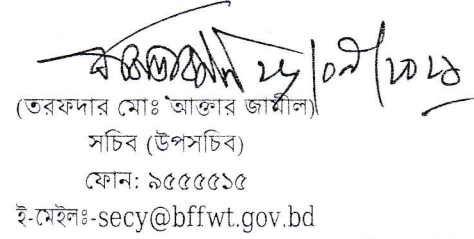 (তরফদার মোঃ আক্তার জামীল)
সচিব (উপসচিব)
ফোন: ৯৫৫৫৫১৫
ই-মেইলঃ-secy@bffwt.gov.bd